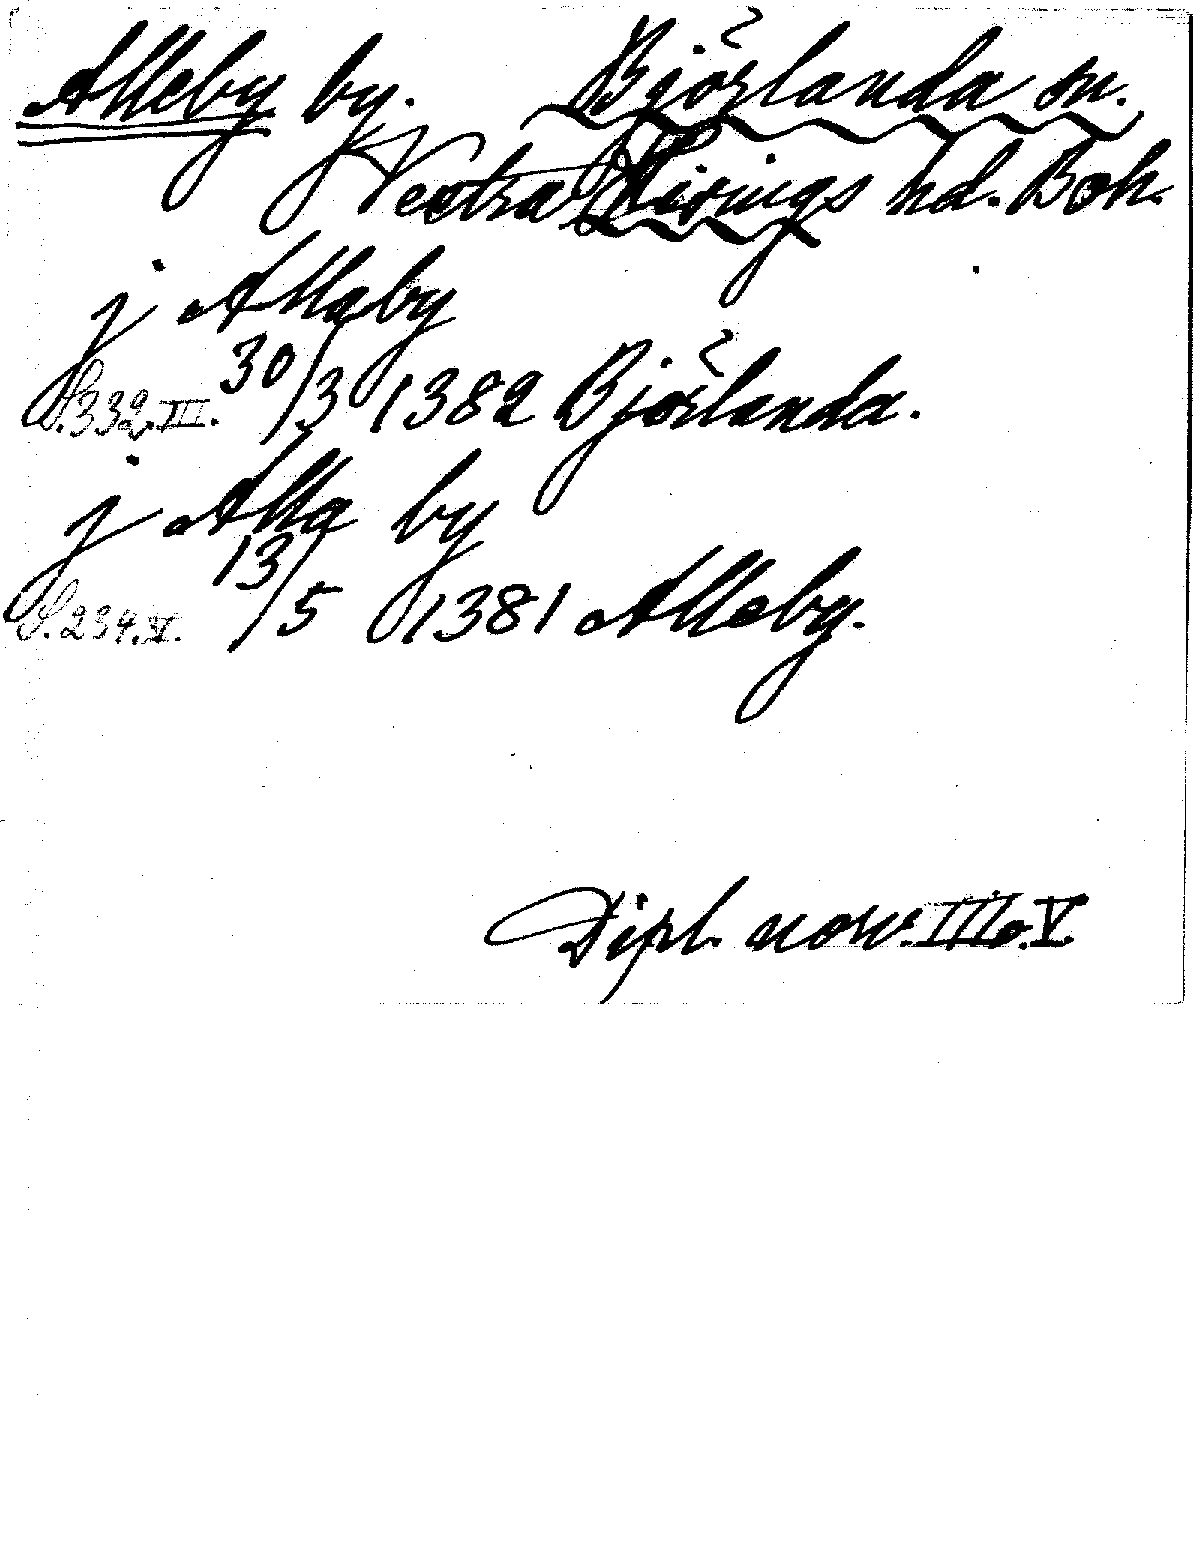 Alleby by. Björlanda sn.
Vestra Hisings hd. Boh.
j Allaby
S. 332. III. 30/3 1382 Björlanda.
j Alla by
S. 234. V. 13/5 1381 Alleby.
Dipl. norv. III o. V.